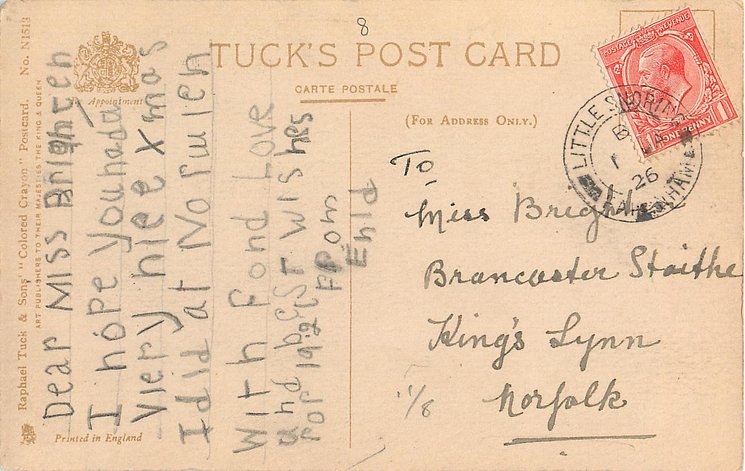 Raphael Tuck & Sons' "Colored Crayon" Postcard. No. N1513
ART PUBLISHERS TO THEIR MAJESTIES THE KING & QUEEN
By Appointment
Printed in England
TUCK'S POST CARD
CARTE POSTALE
(FOR ADDRESS ONLY.)
8
Dear Miss Brighten
I hope you hada
viery niee xmas
I did at Norwich
With Fond Love
and best wishes
For 192
From
Enid
POSTAGE REVENUE
ONE PENNY
LITTLE
26
To
Miss Brighten
Brancaster Staithe
King's Lynn
Norfolk
1/8